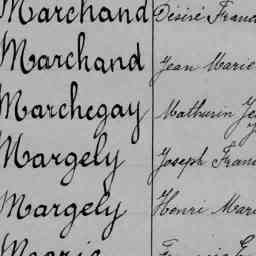 Marchand Désiré Franc
Marchand Jean Marie
Marchegay Mathurin Je
Margely Joseph Fran
Margely Henri Mari